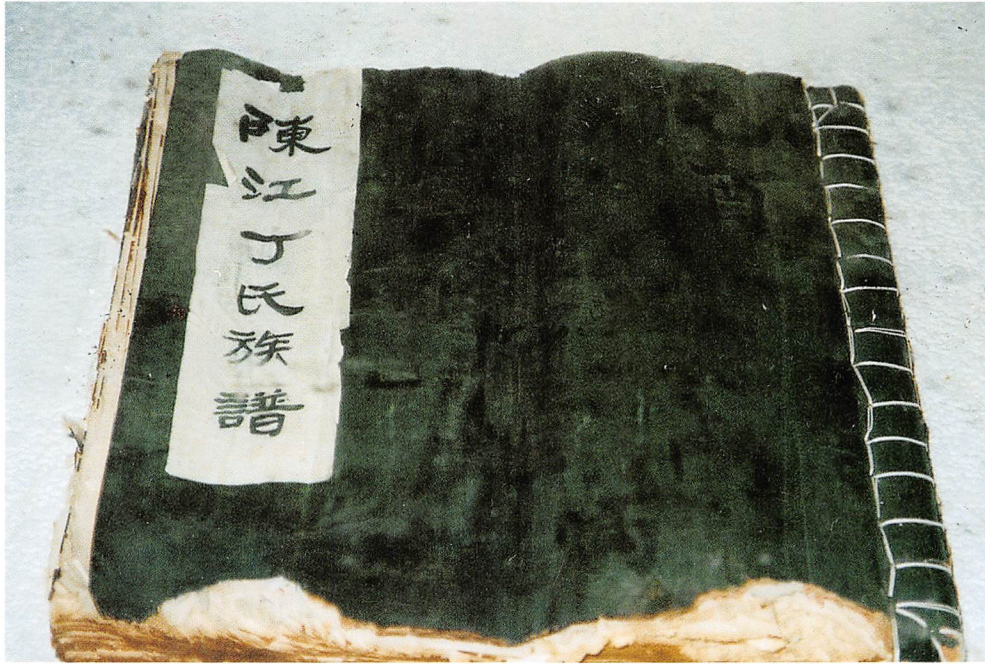 陳江丁氏族譜